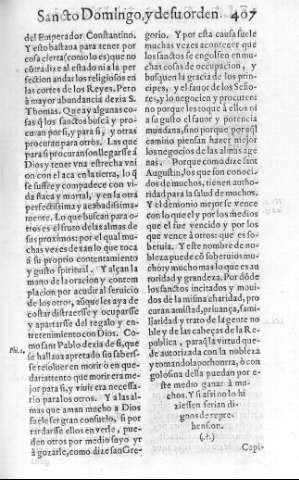 Sancto Domingo, y de su orden. 407
del Emperador Constantino.
Y esto bastaua para tener por
cosa cierta (como lo es) que no
cōtradize al estado ni a la per
fection andar los religiosos en
las cortes de los Reyes. Pero
à mayor abundancia dezia S.
Thomas. Que ay algunas co-
sas q̃ los sanctos buscã y pro-
curan por si, y para si, y otras
procuran para otros. Las que
para si procuran son llegarse à
Dios y tener vna estrecha vni
on con el aca en la tierra, lo q̃
se suffre y compadece con vi-
da flaca y mortal, y en la otra
perfectissima y acabadissima-
mente. Lo que buscan para o-
tros es el fruto de las almas de
sus proximos: por el qual mu-
chas vezes dexan lo que toca
à su proprio contentamiento
y gusto spiritual. Y alçan la
mano de la oracion y contem
placion por acudir al seruicio
de los otros, aũque les aya de
costar distraerse y ocuparse
y apartarse del regalo y en-
tretenimiento con Dios. Co-
mo sant Pablo dezia de si, que
se hallaua apretado sin saber-
se resoluer en morir o en que-
dar: attento que morir era me-
jor para si, y viuir era necessa-
rio para los otros. Y a las al-
mas que aman mucho a Dios
suele ser gran consuelo, si por
tardarse ellos en verle, pue-
den otros por medio suyo yr
à gozarle, como dize san Gre-
Phil.1.
gorio. Y por esta causa suele
muchas vezes acontecer que
los sanctos se engolfen en mu
chas cosas de occupacion, y
busquen la gracia de los princi-
pes, y el fauor de los Seño-
res, y lo negocien y procuren:
no porque les toque à ellos ni
a su gusto el fauor y potencia
mundana, sino porque por aq̃l
camino piensan hazer mejor
los negocios de las almas age
nas. Porque como dize sant
Augustin, los que son conoci-
dos de muchos, tienen autho-
ridad para la salud de muchos.
Y el demonio mejor se vence
con lo que el y por los medios
que el fue vencido y por los
que vence à otros: que es so-
beruia. Y este nombre de no-
bleza puede cō soberuios mu-
cho: y mucho mas lo que es au
toridad y grandeza. Por dōde
los sanctos incitados y moui-
dos dē la misma charidad, pro
curan amistad, priuança, fami-
liaridad y trato de la gente no
ble y de las cabeças de la Re-
publica, para q̃ la virtud que-
de autorizada con la nobleza
y tomandola por honra, ò con
golosina della puedan por e-
ste medio ganar à mu-
chos. Y si assi no lo hi
ziessen serian di-
gnos de repre-
hension.
(.?.)
Capi-